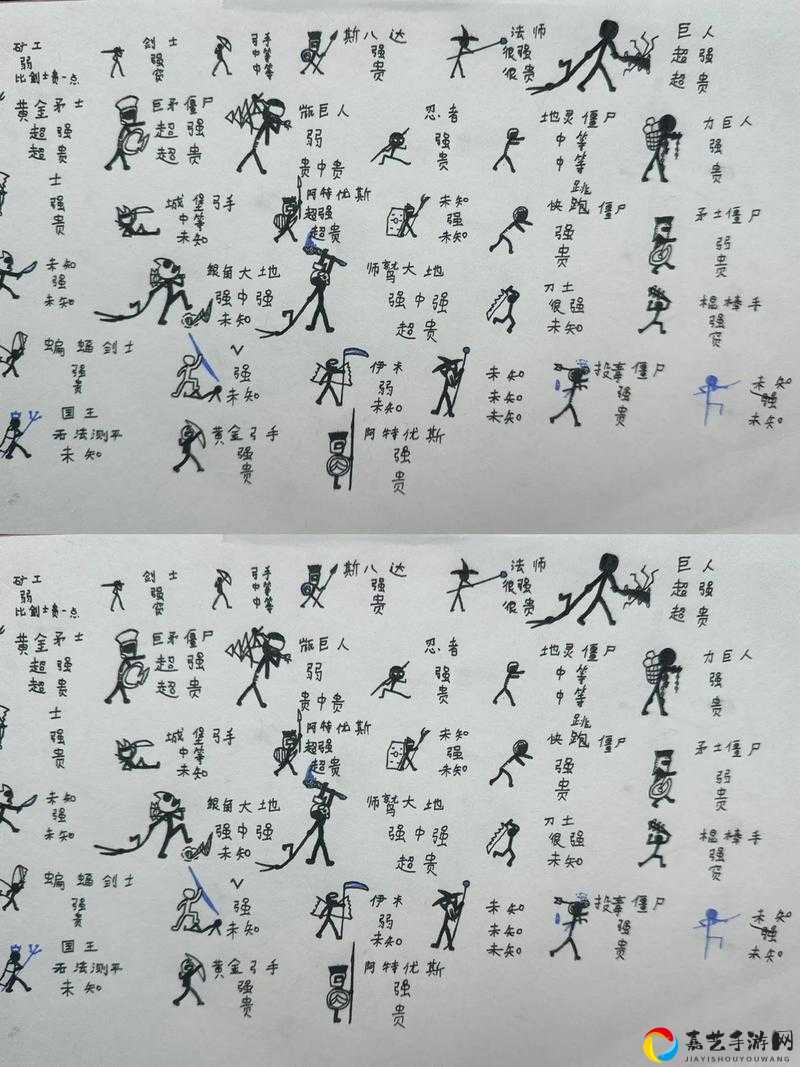 矿工
弱
比剑士贵一点
剑士
强
贫
弓手
中等
中等
斯八达
强
贵
法师
很强
很贵
巨人
超强
超贵
黄金矛士
超强
超贵
巨矛僵尸
超强
超贵
巨人
弱
贵中贵
忍者
强
贵
地灵僵尸
中等
中等
力巨人
强
贵
士
强
贵
城堡弓手
中等
未知
阿特优斯
超强
超贵
未知
强
未知
跳
快跑僵尸
强
贵
矛士僵尸
弱
贵
未知
强
未知
银角大地
强中强
未知
师鹫大地
强中强
超贵
刀士
很强
未知
棍棒手
强
贫
蝙蝠剑士
强
贵
V
强
未知
伊木
弱
未知
未知
未知
未知
投毒僵尸
强
贵
未知
强
未知
国王
无法测平
未知
黄金弓手
强
贵
阿特优斯
强
贵
矿工
弱
比剑士贵一点
剑士
强
贫
弓手
中等
中等
斯八达
强
贵
法师
很强
很贵
巨人
超强
超贵
黄金矛士
超强
超贵
巨矛僵尸
超强
超贵
巨人
弱
贵中贵
忍者
强
贵
地灵僵尸
中等
中等
力巨人
强
贵
士
强
贵
城堡弓手
中等
未知
阿特优斯
超强
超贵
未知
强
未知
跳
快跑僵尸
强
贵
矛士僵尸
弱
贵
未知
强
未知
银角大地
强中强
未知
师鹫大地
强中强
超贵
刀士
很强
未知
棍棒手
强
贫
蝙蝠剑士
强
贵
V
强
未知
伊木
弱
未知
未知
未知
未知
投毒僵尸
强
贵
未知
强
未知
国王
无法测平
未知
黄金弓手
强
贵
阿特优斯
强
贵
嘉艺手游网
JIAYISHOUYOUWANG